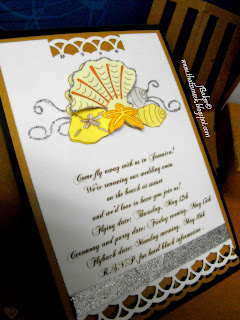 Come fly away with us to Jamaica!
We're renewing our wedding vows
on the beach at sunset
and we'd love to have you join us!
Flying date: Thursday, May 12th
Ceremony and party date: Friday evening, May 13th
Flyback date: Monday morning, May 16th
R.S.V.P. for hotel block information